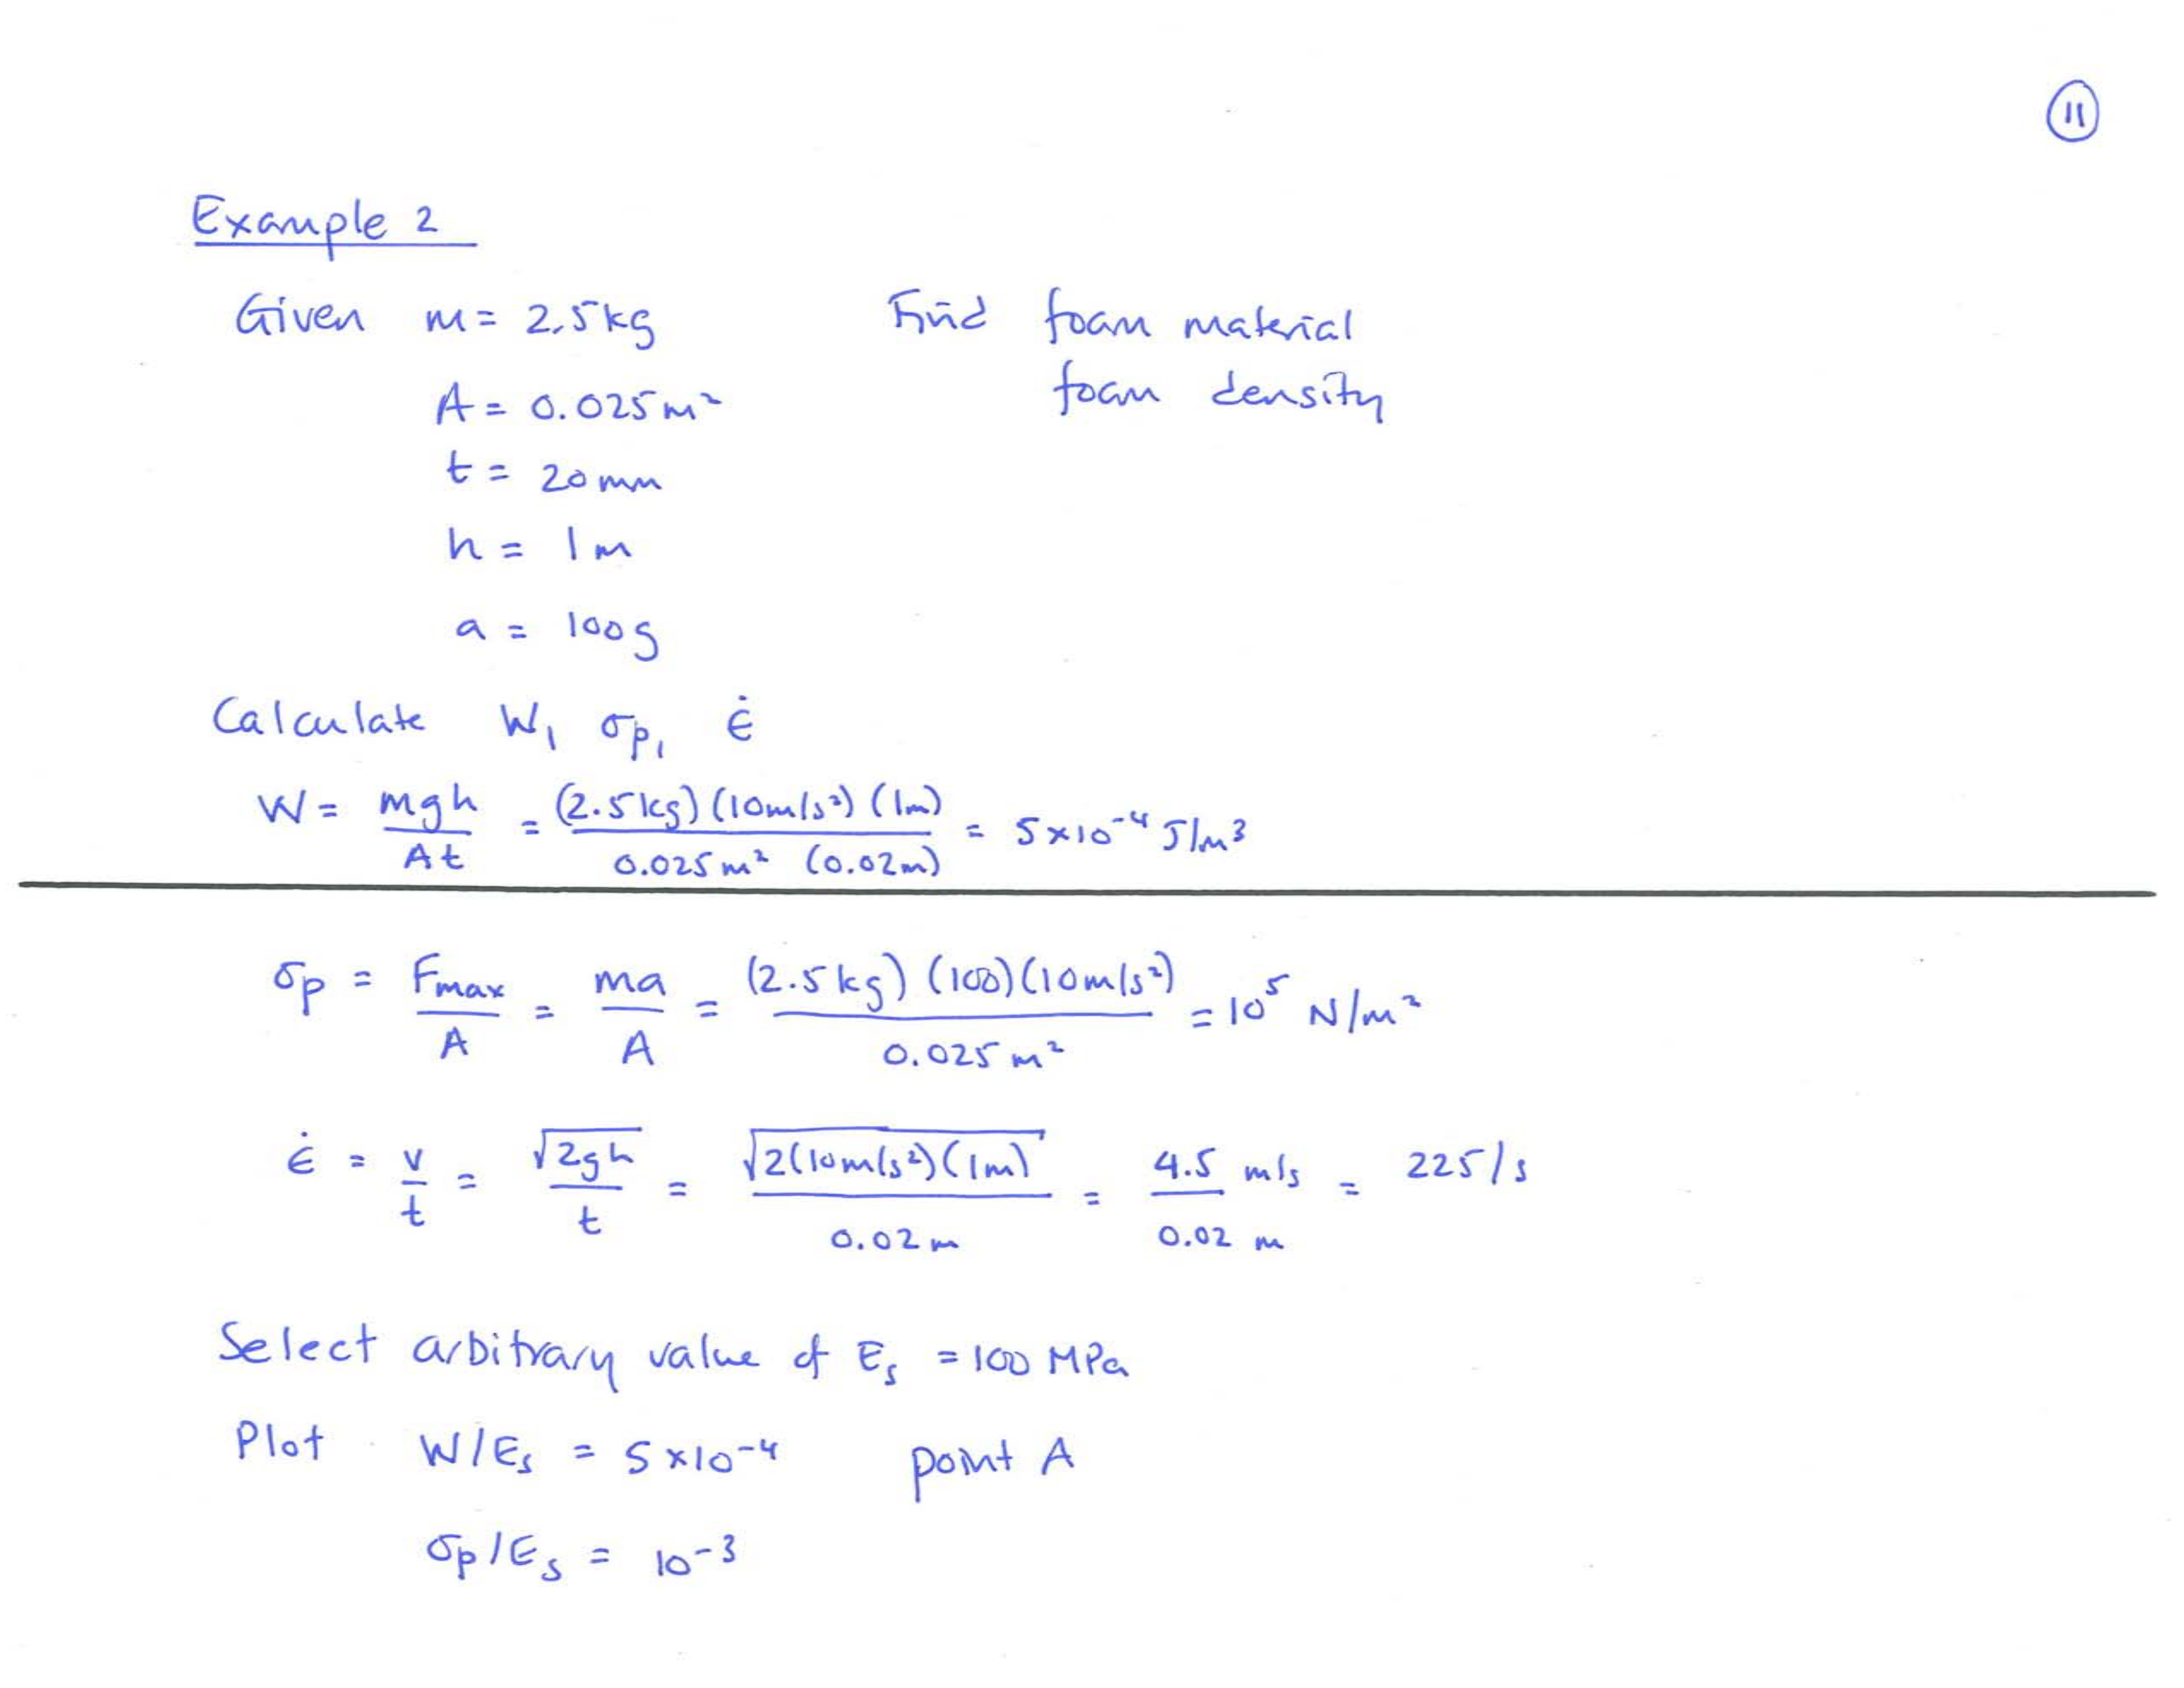 11
Example 2
Given m = 2.5kg Find foam material
A = 0.025 m² foam density
t = 20 mm
h = 1 m
a = 100g
Calculate W, σp, ε̇
W = mgh/At = (2.5kg)(10m/s²)(1m)/0.025m² (0.02m) = 5×10⁻⁴ J/m³
σp = Fmax/A = ma/A = (2.5kg)(100)(10m/s²)/0.025 m² = 10⁵ N/m²
ε̇ = v/t = √2gh/t = √2(10m/s²)(1m)/0.02m = 4.5 m/s/0.02 m = 225/s
Select arbitrary value of Es = 100 MPa
Plot W/Es = 5×10⁻⁴ point A
σp/Es = 10⁻³